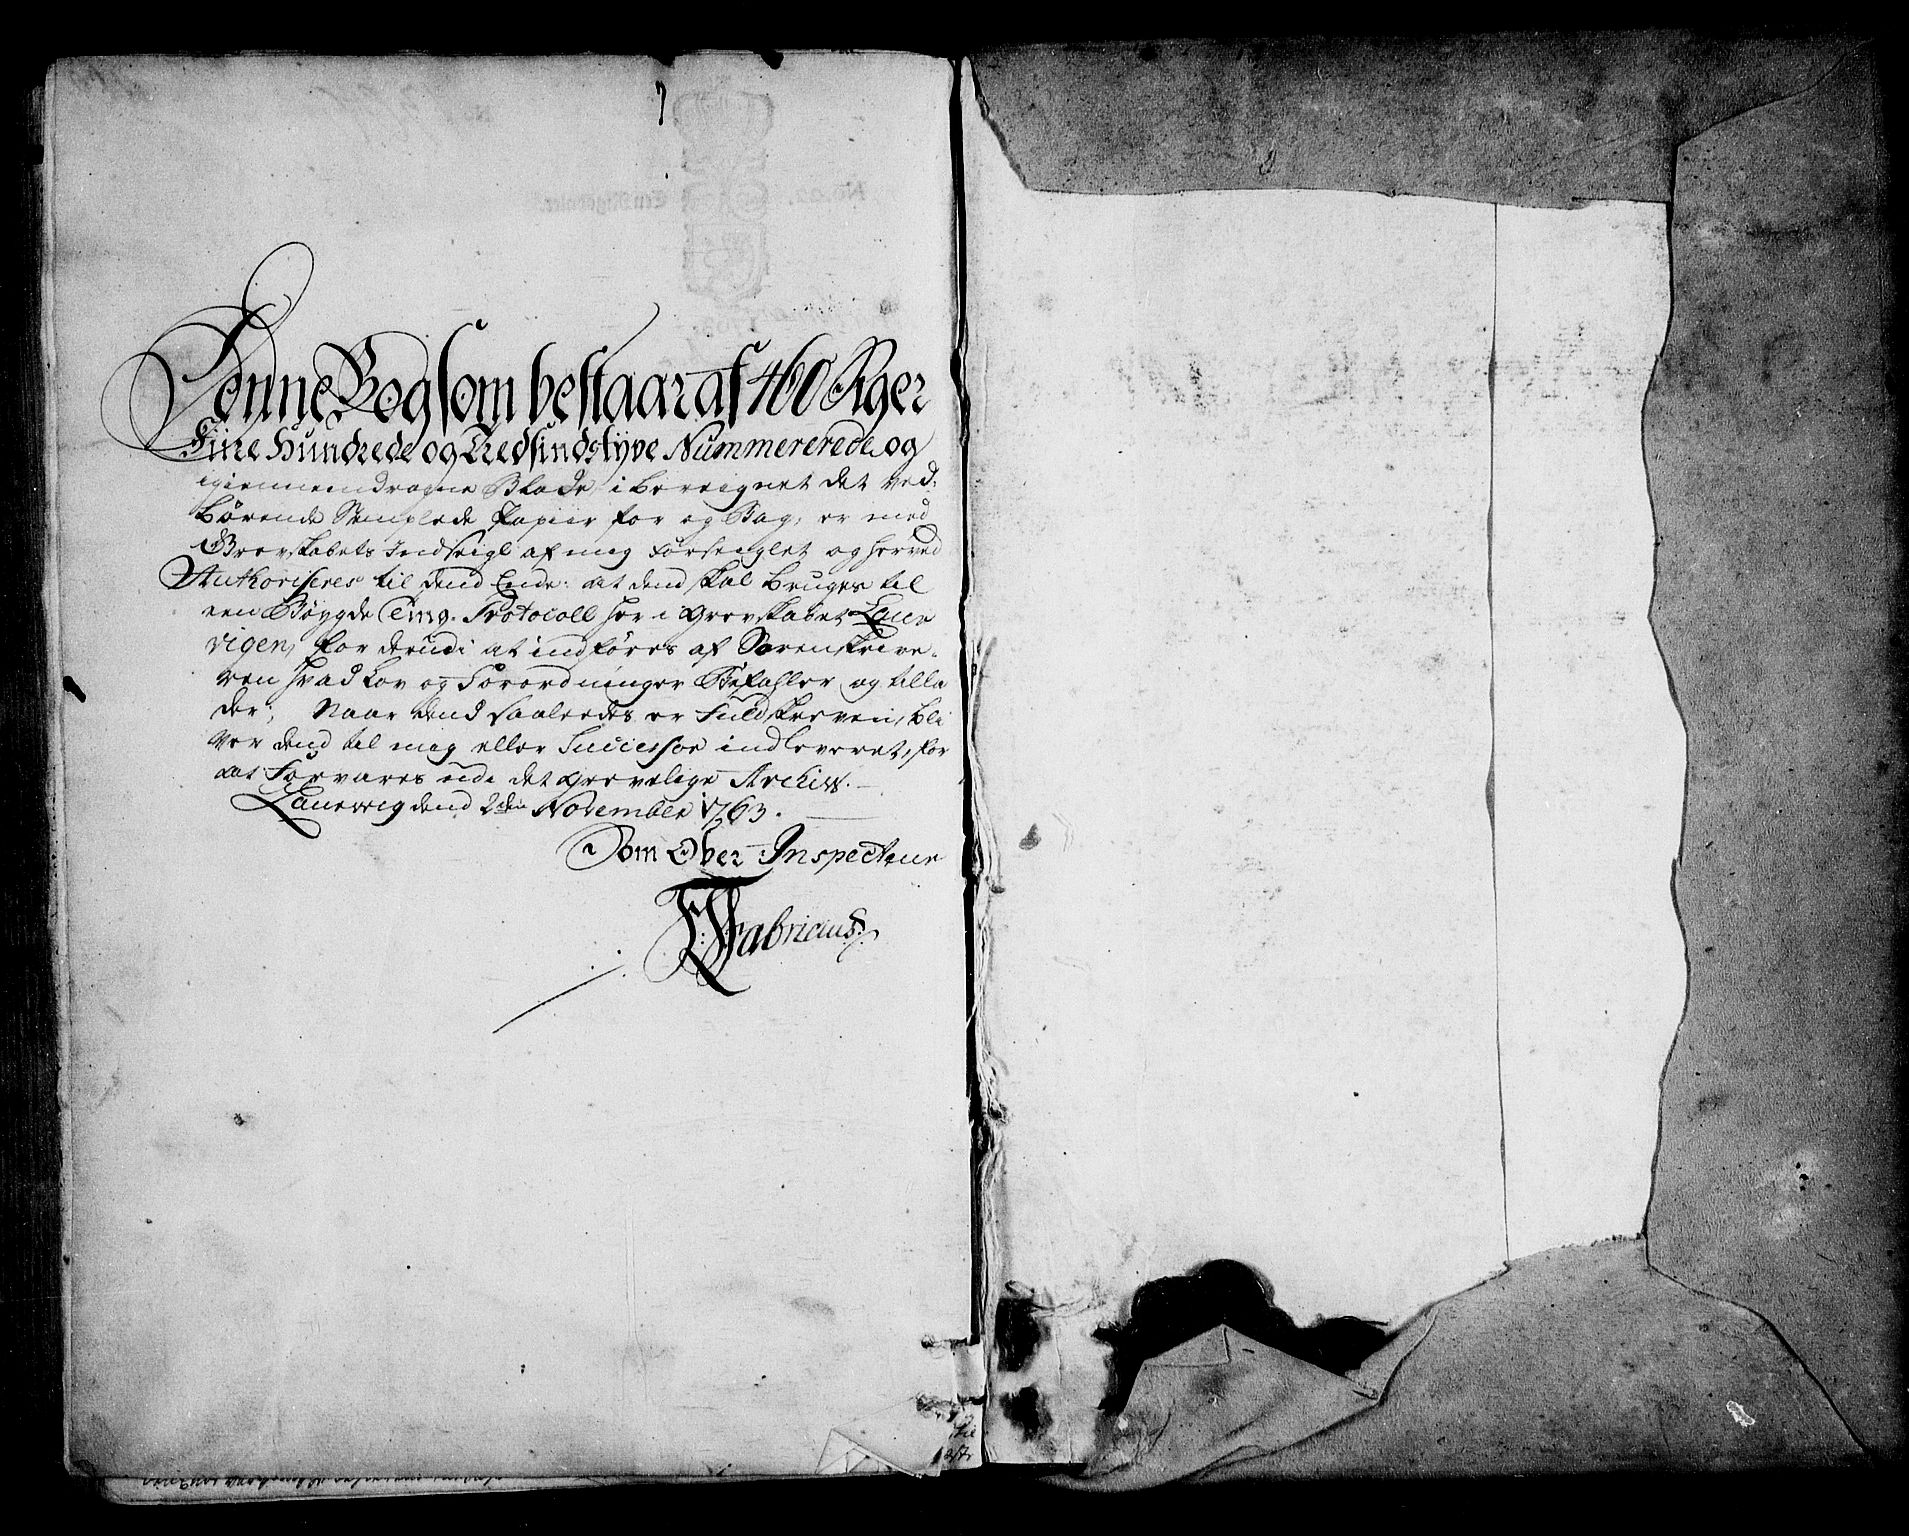 Denne Bog som bestaar af 460 Siger
Fiire Hundrede og Tredsindstyve Nummererede og
igiennemdragne Blade, i bereignet det ved-
børende Stemplede Papiir for og Bag, er med
Grevskabets Indseigl af mig forseiglet og herved
Authoriseres til dend Ende: at dend skal bruges til
een Bøygde Ting-Protocoll her i Grevskabet Laur
vigen, for derudi at indføres af Sorenskrive-
ren hvad Lov og Forordninger Befahler og tilla
der; Naar dend saaledes er Fuldskreven, bli
ver dend til mig eller Successor indleveret, for
at Forvares udi det Grevelige Archiv.
Laurvig dend 2den November 1763.
Som Ober-Inspecteur
Fabricius